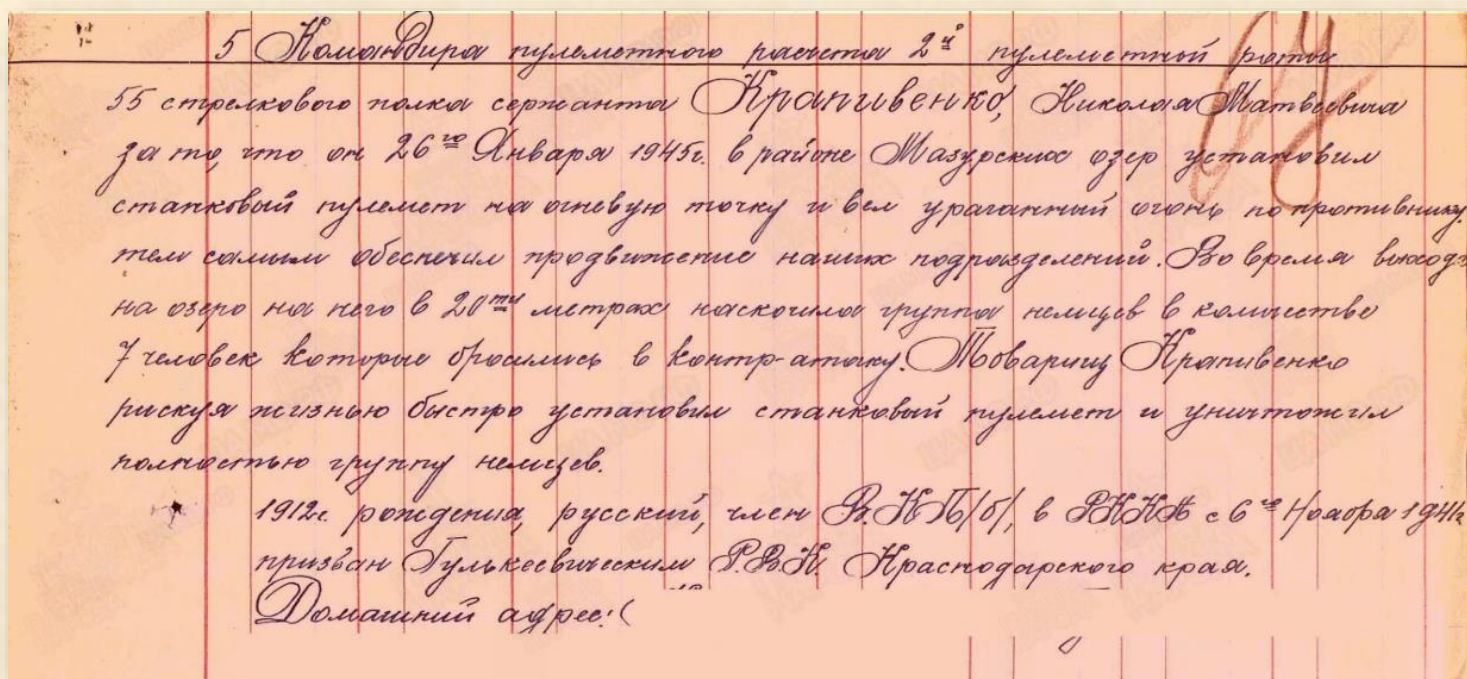 5 Командира пулеметного расчета 2й пулеметной роты
55 стрелкового полка сержанта Крапивенко, Николая Матвеевича
за то, что он 26го Января 1945г. в районе Мазурских озер установил
станковый пулемет на огневую точку и вел ураганный огонь по противнику,
тем самым обеспечил продвижение наших подразделений. Во время выхода
на озеро на него в 20ти метрах наскочила группа немцев в количестве
7 человек которые бросились в контр-атаку. Товарищ Крапивенко
рискуя жизнью быстро установил станковый пулемет и уничтожил
полностью группу немцев.
1912г. рождения, русский, член В.К.П/б/, в РККА с 6го Ноября 1941г.
призван Гулькевическим Р.В.К. Краснодарского края.
Домашний адрес:(